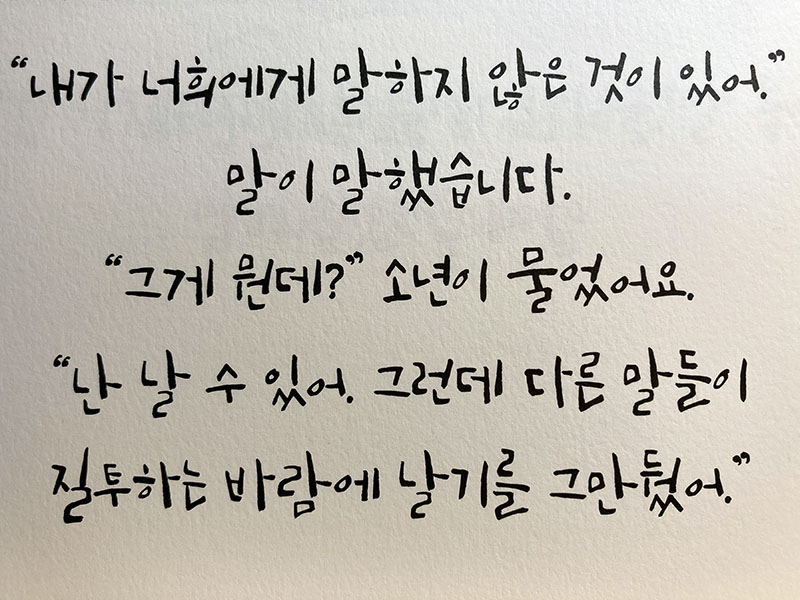 “내가 너희에게 말하지 않은 것이 있어.”
말이 말했습니다.
“그게 뭔데?” 소년이 물었어요.
“난 날 수 있어. 그런데 다른 말들이
질투하는 바람에 날기를 그만뒀어.”